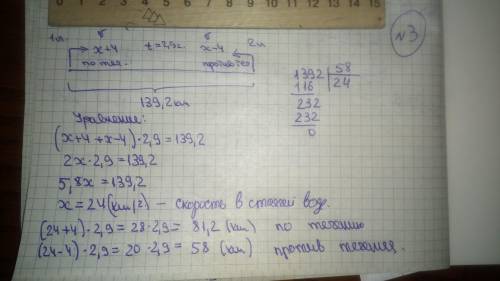 0 1 2 3 4 5 6 7 8 9 10 11 12 13 14 15
№3
1л. x+4 t=2,9ч. x-4 2л
по теч.
139,2 км
1392 | 58
116 24
232
232
0
Уравнение:
(x+4+x-4)·2,9=139,2
2x·2,9=139,2
5,8x=139,2
x=24 (км/ч) - скорость в стоячей воде.
(24+4)·2,9=28·2,9=81,2 (км) по течению
(24-4)·2,9=20·2,9=58 (км) против течения.